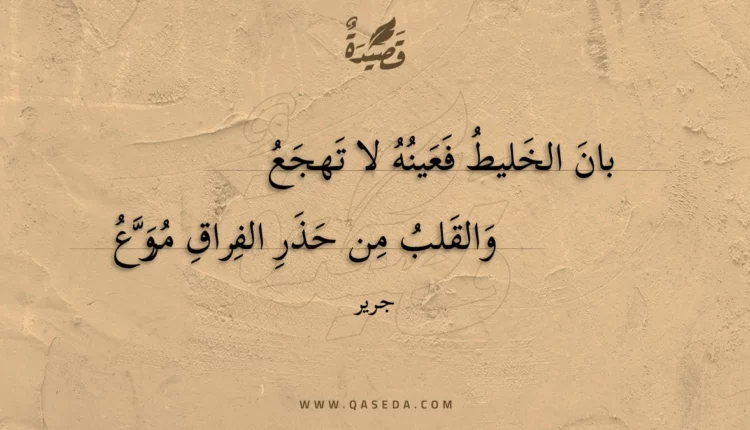 قَصِيدَةٌ
بانَ الخَليطُ فَعَينُهُ لا تَهجَعُ
وَالقَلبُ مِن حَذَرِ الفِراقِ مُرَوَّعُ
جرير
WWW.QASEDA.COM